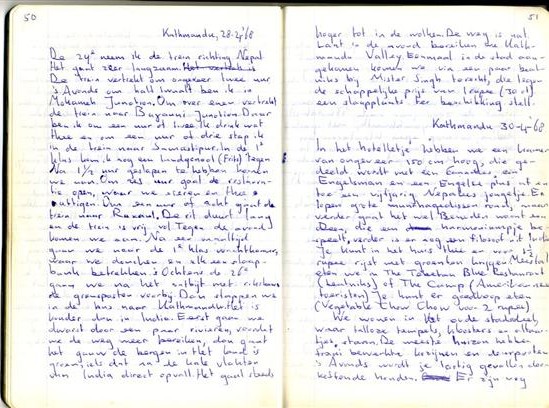 50
Kathmandu, 28-4-'68
De 24e neem ik de trein richting Nepal
Het gaat zeer langzaam.
De trein vertrekt om ongeveer twee uur
's Avonds om half ben ik in
Mokameh Junction. Om over enen vertrekt
de trein naar Barauni Junction. Daar
ben ik om een uur of twee. Ik drink wat
thee en om een uur of drie stap ik
in de trein naar Samastipur. In de 1e
klas kom ik nog een landgenoot (Frits) tegen
Na 1½ uur geslapen te hebben komen
we aan. Om zes uur gaat de restaura-
tie open, waar we eieren en thee
nuttigen. Om een uur of acht gaat de
trein naar Raxaul. De rit duurt lang
en de trein is vrij vol. Tegen de avond
komen we aan. Na een maaltijd
gaan we naar de 1e klas wachtkamer,
waar we douchen en elk een slaap-
bank betrekken. 's Ochtends de 26e
gaan we na het ontbijt met rikshaws
de grensposten voorbij. Dan stappen we
in de bus naar Kathmandu. Het is
minder dan in India. Eerst gaan we
dwars door een paar rivieren, voordat
we de weg meer bereiken, dan gaat
het gauw de bergen in. Het land is
groen, iets dat na de kale vlakten
van India direct opvalt. Het gaat steeds
51
hoger tot in de wolken. De weg is nat.
Laat in de avond bereiken we Kath-
mandu Valley. Eenmaal in de stad aan-
gekomen komen we via een paar beat-
niks bij Mister Singh terecht, die tegen
de schappelijke prijs van 1 rupee (30 ct)
een slaapplaats ter beschikking stelt.
Kathmandu 30-4-'68
In het hotelletje hebben we een kamer
van ongeveer 150 cm hoog, die ge-
deeld wordt met een Canadees, een
Engelsman en een Engelse plus nt en
toe een vijftigjarig Nepalees jongetje. Er
lopen grote rond, maar
verder gaat het wel. Beneden woont een
Deen, die een harmoniumpje be-
speelt, verder is er nog een filosoof uit
Je kunt in het huis thee en voor 1½
rupee rijst met groenten krijgen. Meestal
eten we in The Tibetan Blue Restaurant
(beatniks) of The Camp (Amerikaanse
toeristen). Je kunt er goedkoop eten
(Vegetable Chow Chow voor 2 rupees)
We wonen in het oude stadsdeel,
waar talloze tempels, kloosters en altaar-
tjes, staan. De meeste huizen hebben
fraai bewerkte kozijnen en deurposten
's Avonds wordt je lastig gevallen door
keffende honden. Er zijn nog